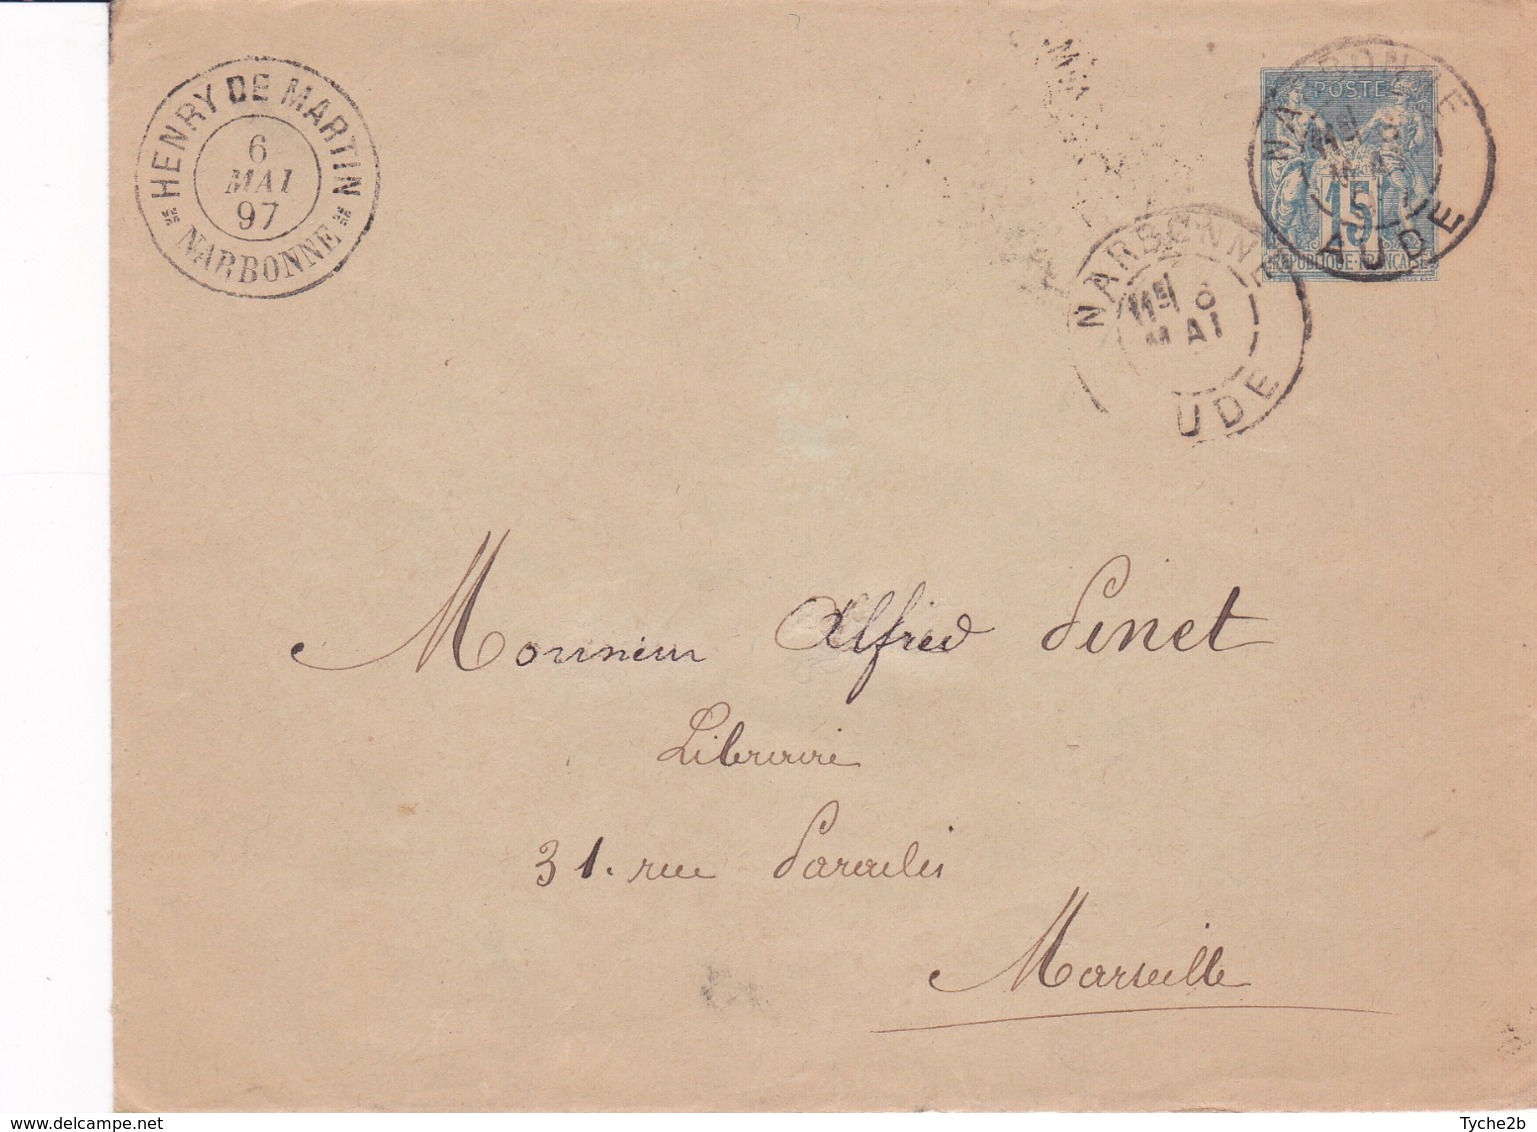 HENRY DE MARTIN
6
MAI
97
NARBONNE
POSTE
15
REPUBLIQUE·FRANCAISE
NARBONNE
AUDE
NARBONNE
6
MAI
UDE
Monsieur Alfred Pinet
Libraire
31. rue Paradis
Marseille
delcampe.net
Tyche2b